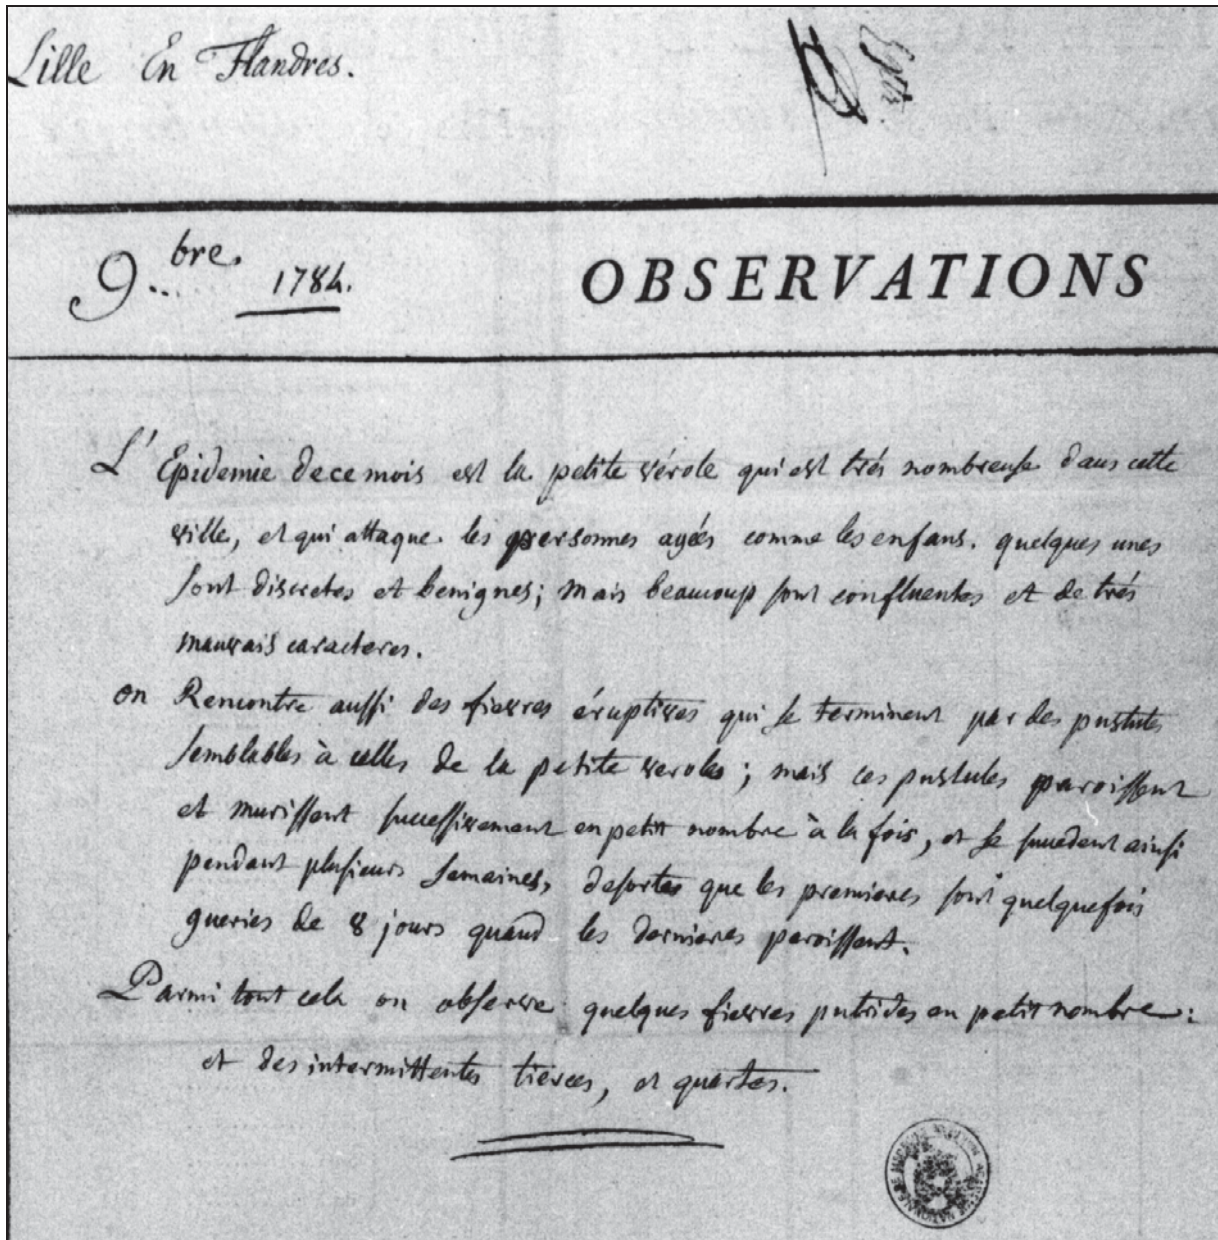 Lille En Flandres.
9.bre. 1784.
OBSERVATIONS
L'Epidemie de ce mois est la petite vérole qui est trés nombreuse dans cette
ville, et qui attaque les personnes agées comme les enfans. quelques unes
sont discretes et benignes; mais beaucoup sont confluentes et de trés
mauvais caracteres.
on Rencontre aussi des fievres éruptives qui se terminent par des pustules
semblables à celles de la petite veroles; mais ces pustules paroissent
et murissent successivement en petit nombre à la fois, et se succedent ainsi
pendant plusieurs semaines, desortes que les premieres sont quelquefois
gueries de 8 jours quand les dernieres paroissent.
Parmi tout cela on observe quelques fievres putrides en petit nombre:
et des intermittentes tierces, et quartes.